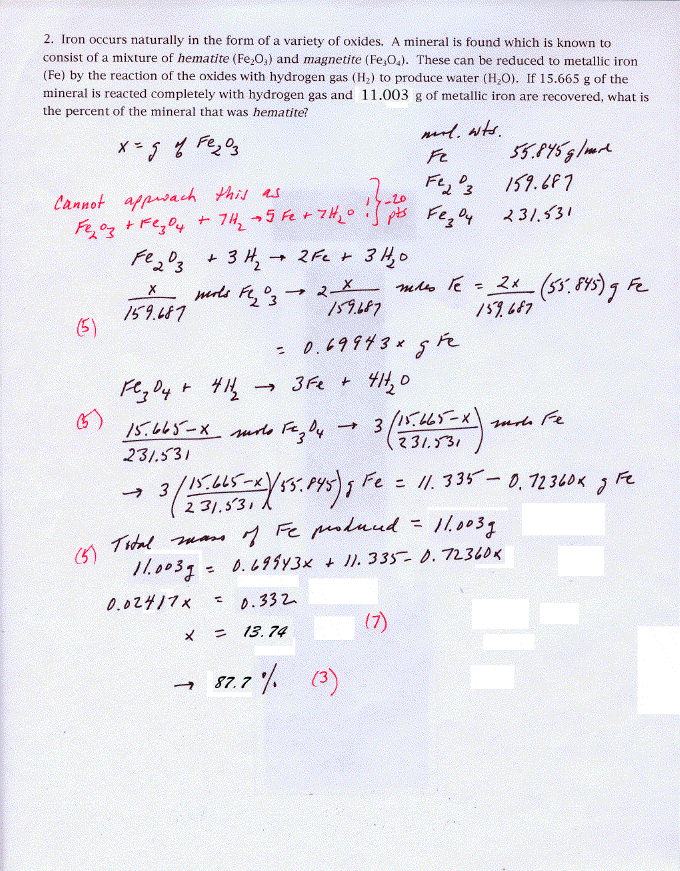 2. Iron occurs naturally in the form of a variety of oxides. A mineral is found which is known to
consist of a mixture of hematite (Fe₂O₃) and magnetite (Fe₃O₄). These can be reduced to metallic iron
(Fe) by the reaction of the oxides with hydrogen gas (H₂) to produce water (H₂O). If 15.665 g of the
mineral is reacted completely with hydrogen gas and 11.003 g of metallic iron are recovered, what is
the percent of the mineral that was hematite?
mol. wts.
x = g of Fe₂O₃
Fe 55.845 g/mol
Fe₂O₃ 159.687
Fe₃O₄ 231.531
Cannot approach this as
Fe₂O₃ + Fe₃O₄ + 7H₂ → 5 Fe + 7H₂O ! } -20 pts
Fe₂O₃ + 3 H₂ → 2 Fe + 3 H₂O
x/159.687 mols Fe₂O₃ → 2 x/159.687 moles Fe = 2x/159.687 (55.845) g Fe
(5)
= 0.69943x g Fe
Fe₃O₄ + 4H₂ → 3 Fe + 4H₂O
(5) 15.665-x/231.531 mols Fe₃O₄ → 3 (15.665-x/231.531) mols Fe
→ 3 (15.665-x/231.531)(55.845) g Fe = 11.335 - 0.72360x g Fe
(5) Total mass of Fe produced = 11.003g
11.003g = 0.69943x + 11.335 - 0.72360x
0.02417x = 0.332
x = 13.74 (7)
→ 87.7 % (3)